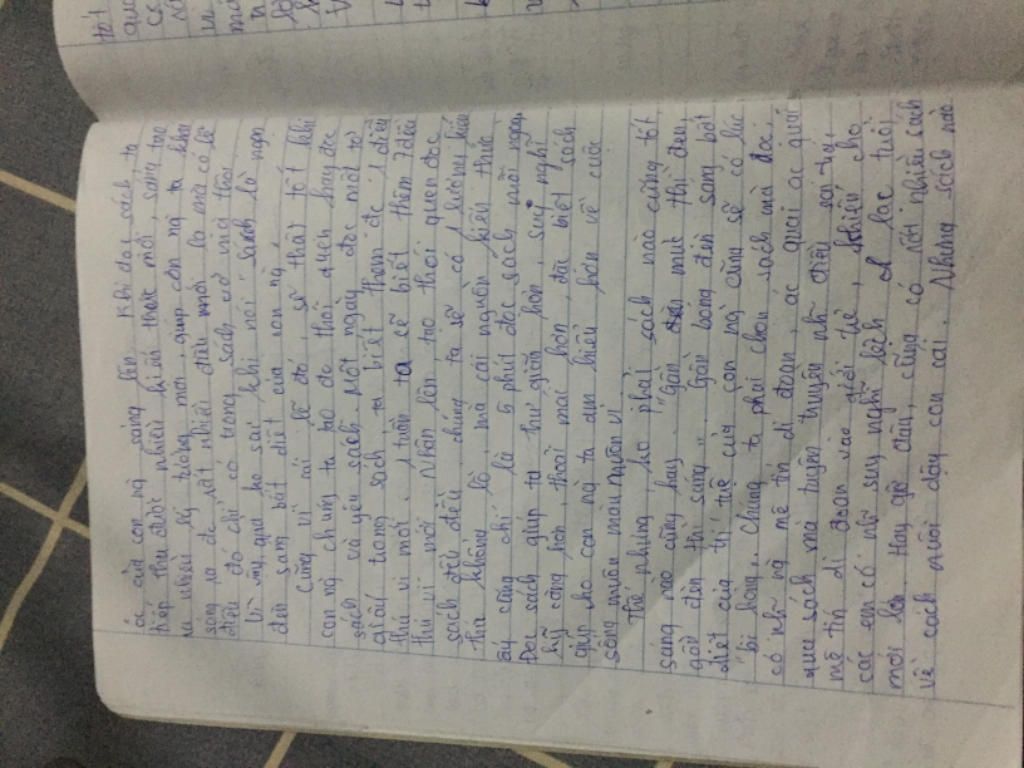 óc của con ng` sáng lên. Khi đọc sách ta
tiếp thu được nhiều kiến thức mới, sáng tạo
ra nhiều lý tưởng mới, giúp con ng` ta khai
sáng ra đc rất nhiều điều mới lạ mà có lẽ
điều đó chỉ có trong sách
Vì vậy, quả ko sai khi nói "sách là ngọn
đèn sáng bất diệt của con ng`"
Cũng vì cái lẽ đó, sẽ thật tốt khi
con ng` chúng ta tạo đc thói quen hay đọc
sách và yêu sách. Một ngày đọc một tờ
giấy trong sách, ta biết thêm đc 1 điều
thú vị mới. 1 tuần ta sẽ biết thêm 7 điều
thú vị mới. Nhân lên tạo thói quen đọc
sách đều đều chúng ta sẽ có 1 lượng kiến
thức khổng lồ, mà cái nguồn kiến thức
ấy cũng chỉ là 5 phút đọc sách mỗi ngày.
Đọc sách giúp ta thư giãn hơn, suy nghĩ
kỹ càng hơn, thoải mái hơn, đặc biệt sách
giúp cho con ng` ta am hiểu hơn về cuộc
sống muôn màu muôn vị.
Thế nhưng, ko phải sách nào cũng tốt
sáng nào cũng hay. "Gần mực thì đen,
gần đèn thì sáng". Gần bóng đèn sáng bất
diệt của trí tuệ của con ng` cũng sẽ có lúc
"bị hỏng". Chúng ta phải chọn sách mà đọc.
có nh~ ng` mê tín dị đoan, ác quái ác quỷ
qua sách mà tuyên truyền nh~ điều sai dại,
mê tín dị đoan vào giới trẻ, khiến cho
các em có nh~ suy nghĩ lệch lạc tuổi
mới lớn. Hay gần đây, cũng có nhiều sách
về cách nuôi dạy con cái. Nhưng sách nào